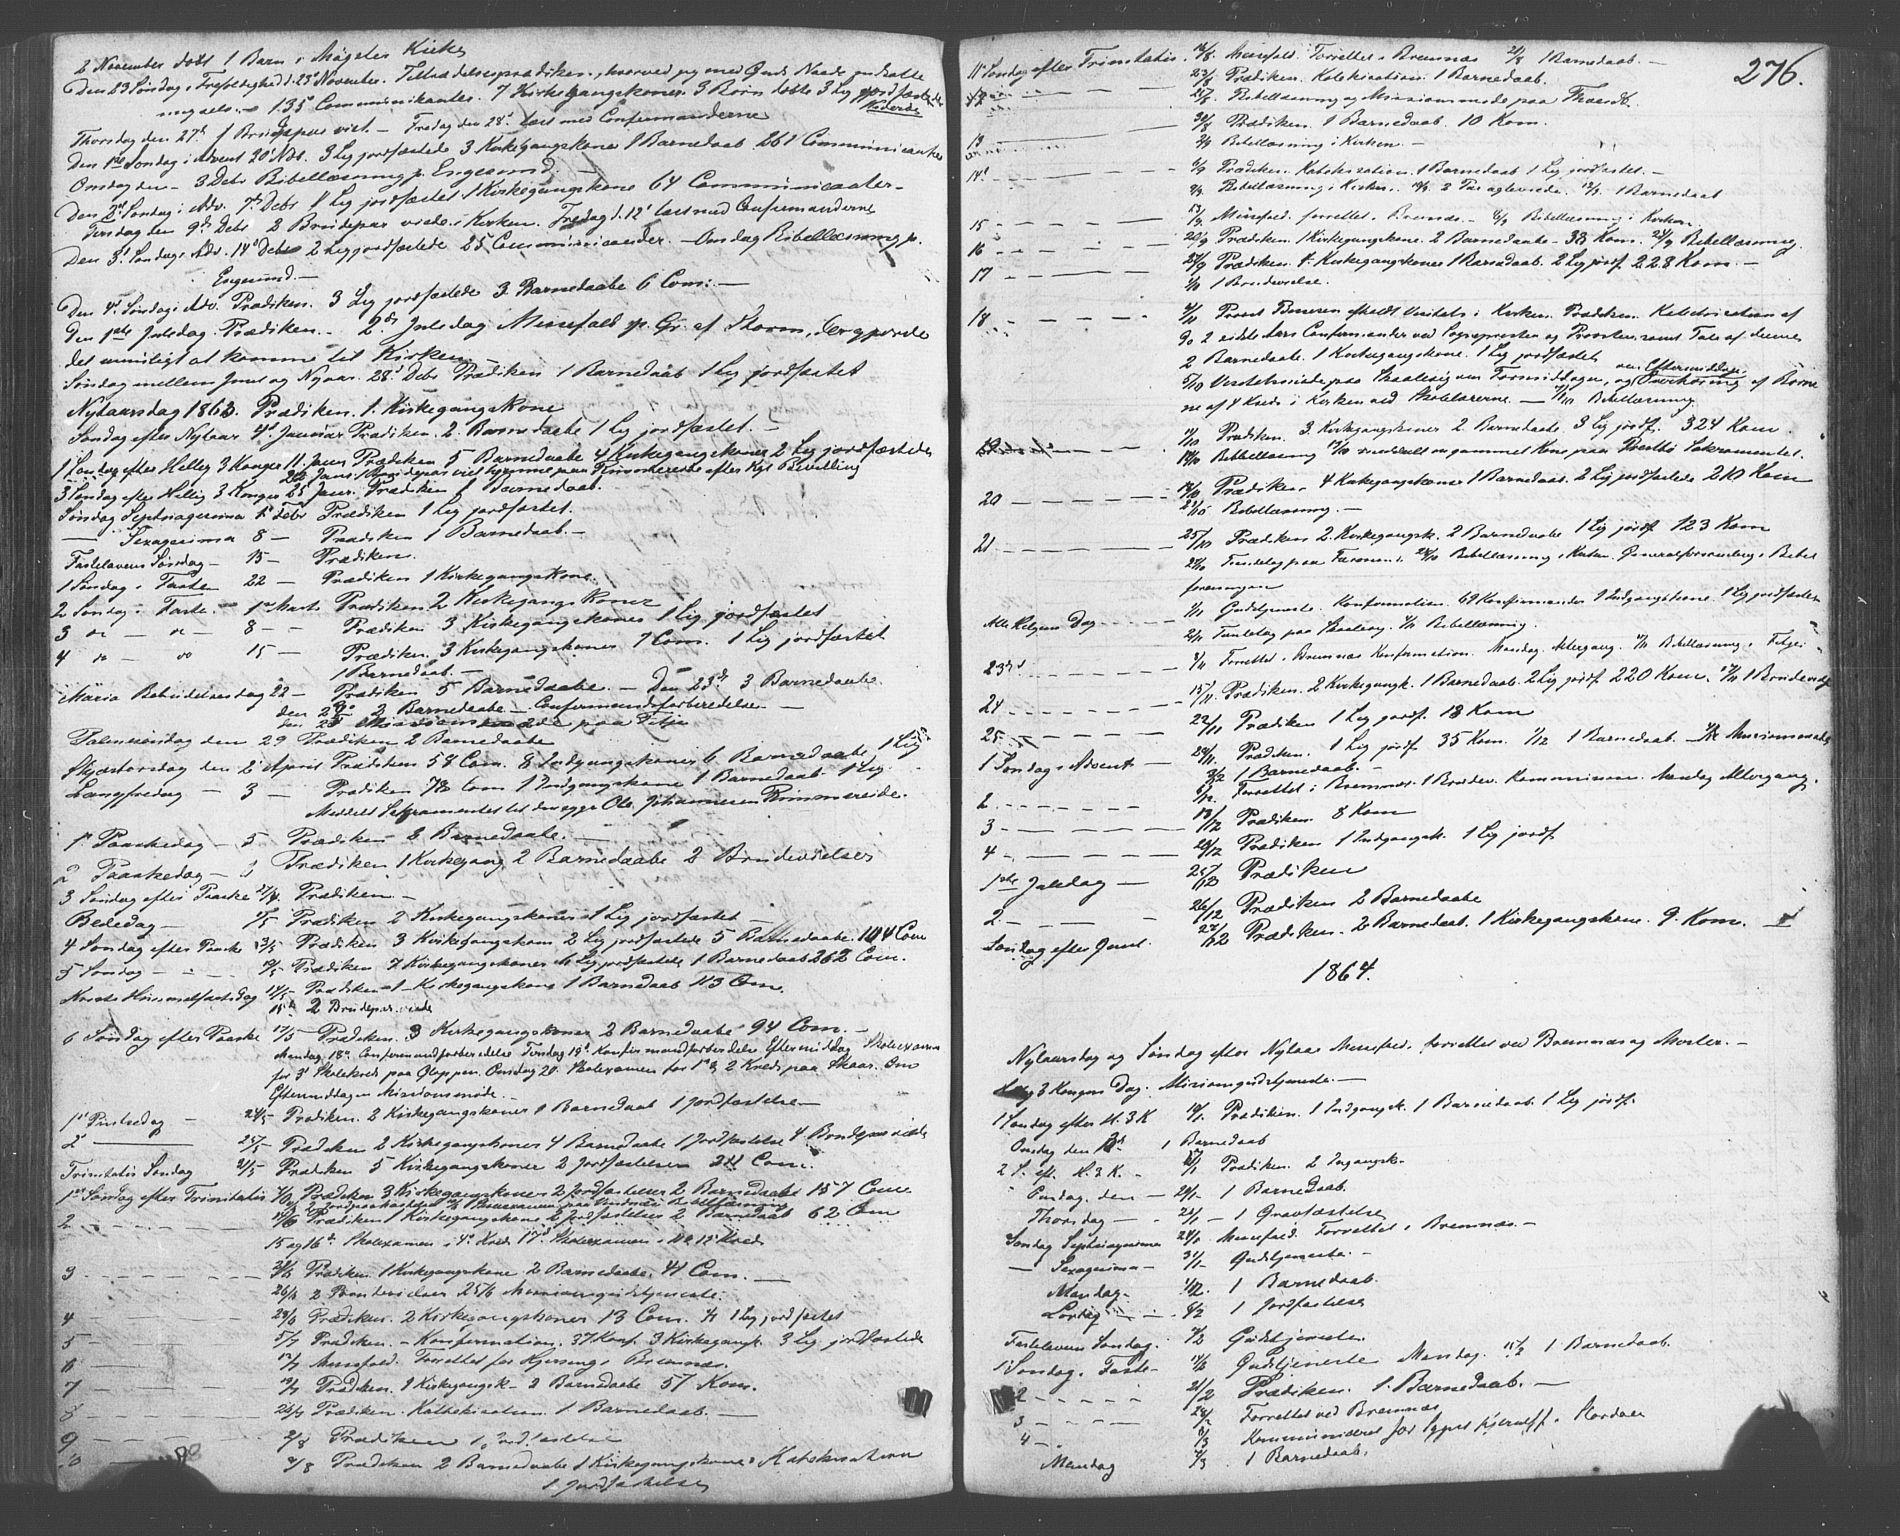 2 November døbt 1 Barn i Møgster Kirke
Den 23 Søndag e. Trefoldighed d. 23de November. Tiltrædelsesprædiken, hvorved jeg med Guds Naade indsatte
135 Communikanter. 7 Kirkegangskoner 3 Børn døbte 3 Lig jordfæstede
Thorsdag den 27de 1 Brudepar viet. – Fredag den 28de læst med Confirmanderne
Den 1ste Søndag i Advent 30 Nbr. 3 Lig jordfæstede 3 Kirkegangskoner 1 Barnedaab 261 Communicanter
Onsdag den – 3 Debr Bibellæsning p. Engesund –
Den 2den Søndag i Adv. 7de Debr 1 Lig jordfæstet 1 Kirkegangskone 64 Communicanter –
Tirsdag den 9de Debr 2 Brudepar viede i Kirken. Fredag d. 12te læst med Confirmanderne
Den 3de Søndag i Adv. 14de Debr 2 Lig jordfæstede 25 Communicander. – Onsdag Bibellæsning p.
Engesund. –
Den 4de Søndag i Adv. Prædiken. 3 Lig jordfæstede 3 Barnedaabe 6 Com: –
Den 1ste Juledag Prædiken. – 2den Juledag Messefald p. Gr. af Storm, der gjorde
det umuligt at komme til Kirken. –
Søndag mellem Juul og Nyaar 28de Debr Prædiken 1 Barnedaab 1 Lig jordfæstet
Nytaarsdag 1863. Prædiken. 1 Kirkegangskone
Søndag efter Nytaar 4de Januar Prædiken. 2 Barnedaabe 1 Lig jordfæstet. –
1 Søndag efter Hellig 3 Konger 11 Janr Prædiken 5 Barnedaabe 4 Kirkegangskoner 2 Lig jordfæstede
22 Janr 1 Brudepar viet hjemme paa Rimmereide efter Kgl Bevilling
3 Søndag efter Hellig 3 Konger 25 Janr. Prædiken 1 Barnedaab.
Søndag Septuagesima 1 Febr Prædiken 1 Lig jordfæstet.
— Sexagesima 8 – Prædiken 1 Barnedaab. –
Fastelavens Søndag – 15 – Prædiken.
1 Søndag i Faste 22 – Prædiken 1 Kirkegangskone.
2 Søndag i Faste. – 1 Marts Prædiken 2 Kirkegangskoner
3 do – do – 8 – Prædiken 3 Kirkegangskoner 1 Lig jordfæstet
4 do – do 15 – Prædiken. 3 Kirkegangskoner 7 Com. 1 Lig jordfæstet
1 Barnedaab. –
Maria Bebudelsesdag 22 – Prædiken 5 Barnedaabe. – Den 23de 3 Barnedaabe
2 Barnedaabe – Confirmandforberedelse –
Missionsmøde paa Fitje
Palmesøndag den 29 Prædiken 2 Barnedaabe
Skjærtorsdag den 2 April Prædiken 58 Com. 8 Indgangskoner 6 Barnedaabe 1 Lig
Langfredag – 3 – Prædiken 78 Com 1 Indgangskone 1 Barnedaab 1 Lig
Meddelt Sakramentet til den syge Ole Johannesen Rimmereide.
1ste Paaskedag – 5 Prædiken 8 Barnedaabe. –
2 Paaskedag – Prædiken 1 Kirkegang 2 Barnedaabe 2 Brudevielser
3 Søndag efter Paaske Prædiken –
Bededag – Prædiken 2 Kirkegangskoner 1 Lig jordfæstet
4 Søndag efter Paaske 3/5 Prædiken 3 Kirkegangskoner 2 Lig jordfæstede 5 Barnedaabe. 104 Com
5 Søndag – 10/5 Prædiken 7 Kirkegangskoner Lig jordfæstede 1 Barnedaab 262 Com.
Kristi Himmelfartsdag 14/5 – Prædiken 1 Kirkegangskone 1 Barnedaab 113 Com.
15de 2 Brudepar viede
6 Søndag efter Paaske 17/5 – Prædiken. 3 Kirkegangskoner 2 Barnedaabe 94 Com. –
Mandag 18de Confirmandforberedelse Tirsdag 19de Konfirmandforberedelse Eftermiddag Skoleexamen
for 3de Skolekreds paa Gloppen. Onsdag 20. Skoleexamen for 1ste & 2 Kreds paa Skaar. Om
Eftermiddagen Missionsmøde.
1ste Pintsedag – 24/5 – Prædiken. 2 Kirkegangskoner 1 Barnedaab 1 Jordfæstelse –
2den — 25/5 Prædiken 2 Kirkegangskoner 4 Barnedaabe 1 Jordfæstelse 4 Brudepar viede
Trinitatis Søndag 31/5 Prædiken 5 Kirkegangskoner 2 Jordfæstelser Com.
1ste Søndag efter Trinitatis 7/6 Prædiken 3 Kirkegangskoner 2 Jordfæstelser 2 Barnedaabe 157 Com
2 – – – 14/6 Prædiken 1 Kirkegangskone 2 Jordfæstelser 2 Barnedaab 62 Com
15 og 16de Skolexamen i 4de Kreds 17de Skolexamen i Kreds
3 – – – 21/6 Prædiken 1 Kirkegangskone 2 Barnedaabe. 41 Com. –
26/6 2 Brudevielser 25/6 Missionsgudstjeneste.
4 – – – 28/6 Prædiken. 2 Kirkegangskoner 13 Com. 1 Lig jordfæstet
5 – – – 5/7 Prædiken – Konfirmation. 37 Konf. 3 Kirkegangsk. 3 Lig jordfæstede
6 – – – 12/7 Messefald. Forrettet for Kjersing i Bremnæs.
7 – – – 19/7 Prædiken. 1 Kirkegangsk – 2 Barnedaabe 57 Kom.
8 – – – 26/7 Prædiken. Kathekisation. 1 Barnedaab. –
9 – – – 2/8 Prædiken 1 Jordfæstelse
10 – – – 9/8 Prædiken 2 Barnedaabe 1 Kirkegangskone. Katekisation
1 Jordfæstelse
276.
11te Søndag efter Trinitatis. 16/8. Messefald. Forrettet i Bremnæs 21/8 1 Barnedaab. –
12 – – – 23/8 Prædiken. Katekisation. 1 Barnedaab.
Bibellæsning og Missionsmøde paa
13 – – – 30/8 Prædiken. 1 Barnedaab. 10 Kom.
Bibellæsning i Kirken. –
14de – – – 6/9 Prædiken. Katekisation. 1 Barnedaab 1 Lig jordfæstet. –
Bibellæsning i Kirken. 1 Barnedaab
15 – – – 13/9 Messefald. forrettet i Bremnæs. – Bibellæsning i Kirken.
16 – – – 20/9 Prædiken. 1 Kirkegangskone. 2 Barnedaabe – 38 Kom. 24/9 Bibellæsning.
17 – – – 27/9 Prædiken. 4 Kirkegangskoner 1 Barnedaab. 2 Lig jordf. 228 Kom. –
1 Brudevielse.
18 – – – 4/10 Provst afholdt Visitats i Kirken. Prædiken. Katekisation af
de 2 sidste Aars Confirmander ved Sognepresten og Provsten, samt Tale af denne
2 Barnedaabe. 1 Kirkegangskone. 1 Lig jordfæstet.
om Eftermiddagen
5/10 Visitatsmøde paa Skaalevig om Formiddagen, og Overhøring af Børne
ne af 4 Kreds i Kirken ved Skolelærerne. – Bibellæsning
19 – – – 11/10 Prædiken. 3 Kirkegangskoner 2 Barnedaabe. 3 Lig jordf. 324 Kom.
Bibellæsning meddelt en gammel Kone paa Sakramentet.
20 – – – 18/10 Prædiken. 4 Kirkegangskoner 1 Barnedaab. 2 Lig jordfæstede 210 Kom
21/10 Bibellæsning. –
21 – – – 25/10 Prædiken 2 Kirkegangsk. 2 Barnedaabe 1 Lig jordf. 123 Kom
Bibellæsning i Kirken. Generalforsamling i Bibel
foreningen
Alle Helgens Dag – – – 1/11 Gudstjeneste. Konfirmation. 69 Konfirmander 1 Indgangskone. 1 Lig jordfæstet
2/11 Bibellæsning.
23de – – – 8/11 Forrettet i Bremnæs Konfirmation. Mandag Altergang. Bibellæsning i
24 – – – 15/11 Prædiken. 2 Kirkegangsk. 1 Barnedaab. 2 Lig jordf. 220 Kom. 1 Brudevielse
25 – – – 22/11 Prædiken 1 Lig jordf. 18 Kom
1 Søndag i Advent – 29/11 Prædiken. 1 Lig jordf. 35 Kom. 1/12 1 Barnedaab. Missionsmøde
1 Barnedaab. –
2 – – – 6/12 Forrettet i Bremnæs. 1 Brudev. Kommunion. Mandag Altergang.
3 – – – 13/12 Prædiken. 8 Kom
4 – – – 20/12 Prædiken 1 Indgangsk. 1 Lig jordf.
1ste Juledag – 25/12 Prædiken
2 – – – 26/12 Prædiken 2 Barnedaabe
Søndag efter Juul. 27/12 Prædiken. 2 Barnedaab. 1 Kirkegangskone. 9. Kom. –
1864.
Nytaarsdag og Søndag efter Nytaar Messefald, forrettet ved Bremnæs og Møster. –
Hellig 3 Kongers Dag. Missionsgudstjeneste. –
1 Søndag efter H. 3 K 10/1 Prædiken. 1 Indgangsk. 1 Barnedaab. 1 Lig jordf.
Onsdag den 13de 1 Barnedaab
2 S. eft. H. 3 K. – 17/1 Prædiken. 2 Ingangsk.
Onsdag. den – 20/1 – 1 Barnedaab.
Thorsdag – – 21/1 – 1 Gravfæstelse
Søndag Septuagesima 24/1 Messefald. Forrettet i Bremnæs. –
— Sexagesima – 31/1 – Gudstjeneste. –
Mandag – 1/2. 1 Barnedaab.
Lørdag – – 6/2 1 Jordfæstelse
Fastelavens Søndag. 7/2 Gudstjeneste.
1 Søndag i Faste – 14/2 Gudstjeneste Mandag. 15/2 1 Barnedaab.
2 – – – 21/2 Prædiken. 1. Barnedaab. –
3 – – – 28/2 Forrettet ved Bremnæs
4 – 6/3 for Sognepr i Stordøen
Mandag 7/3 1 Barnedaab.